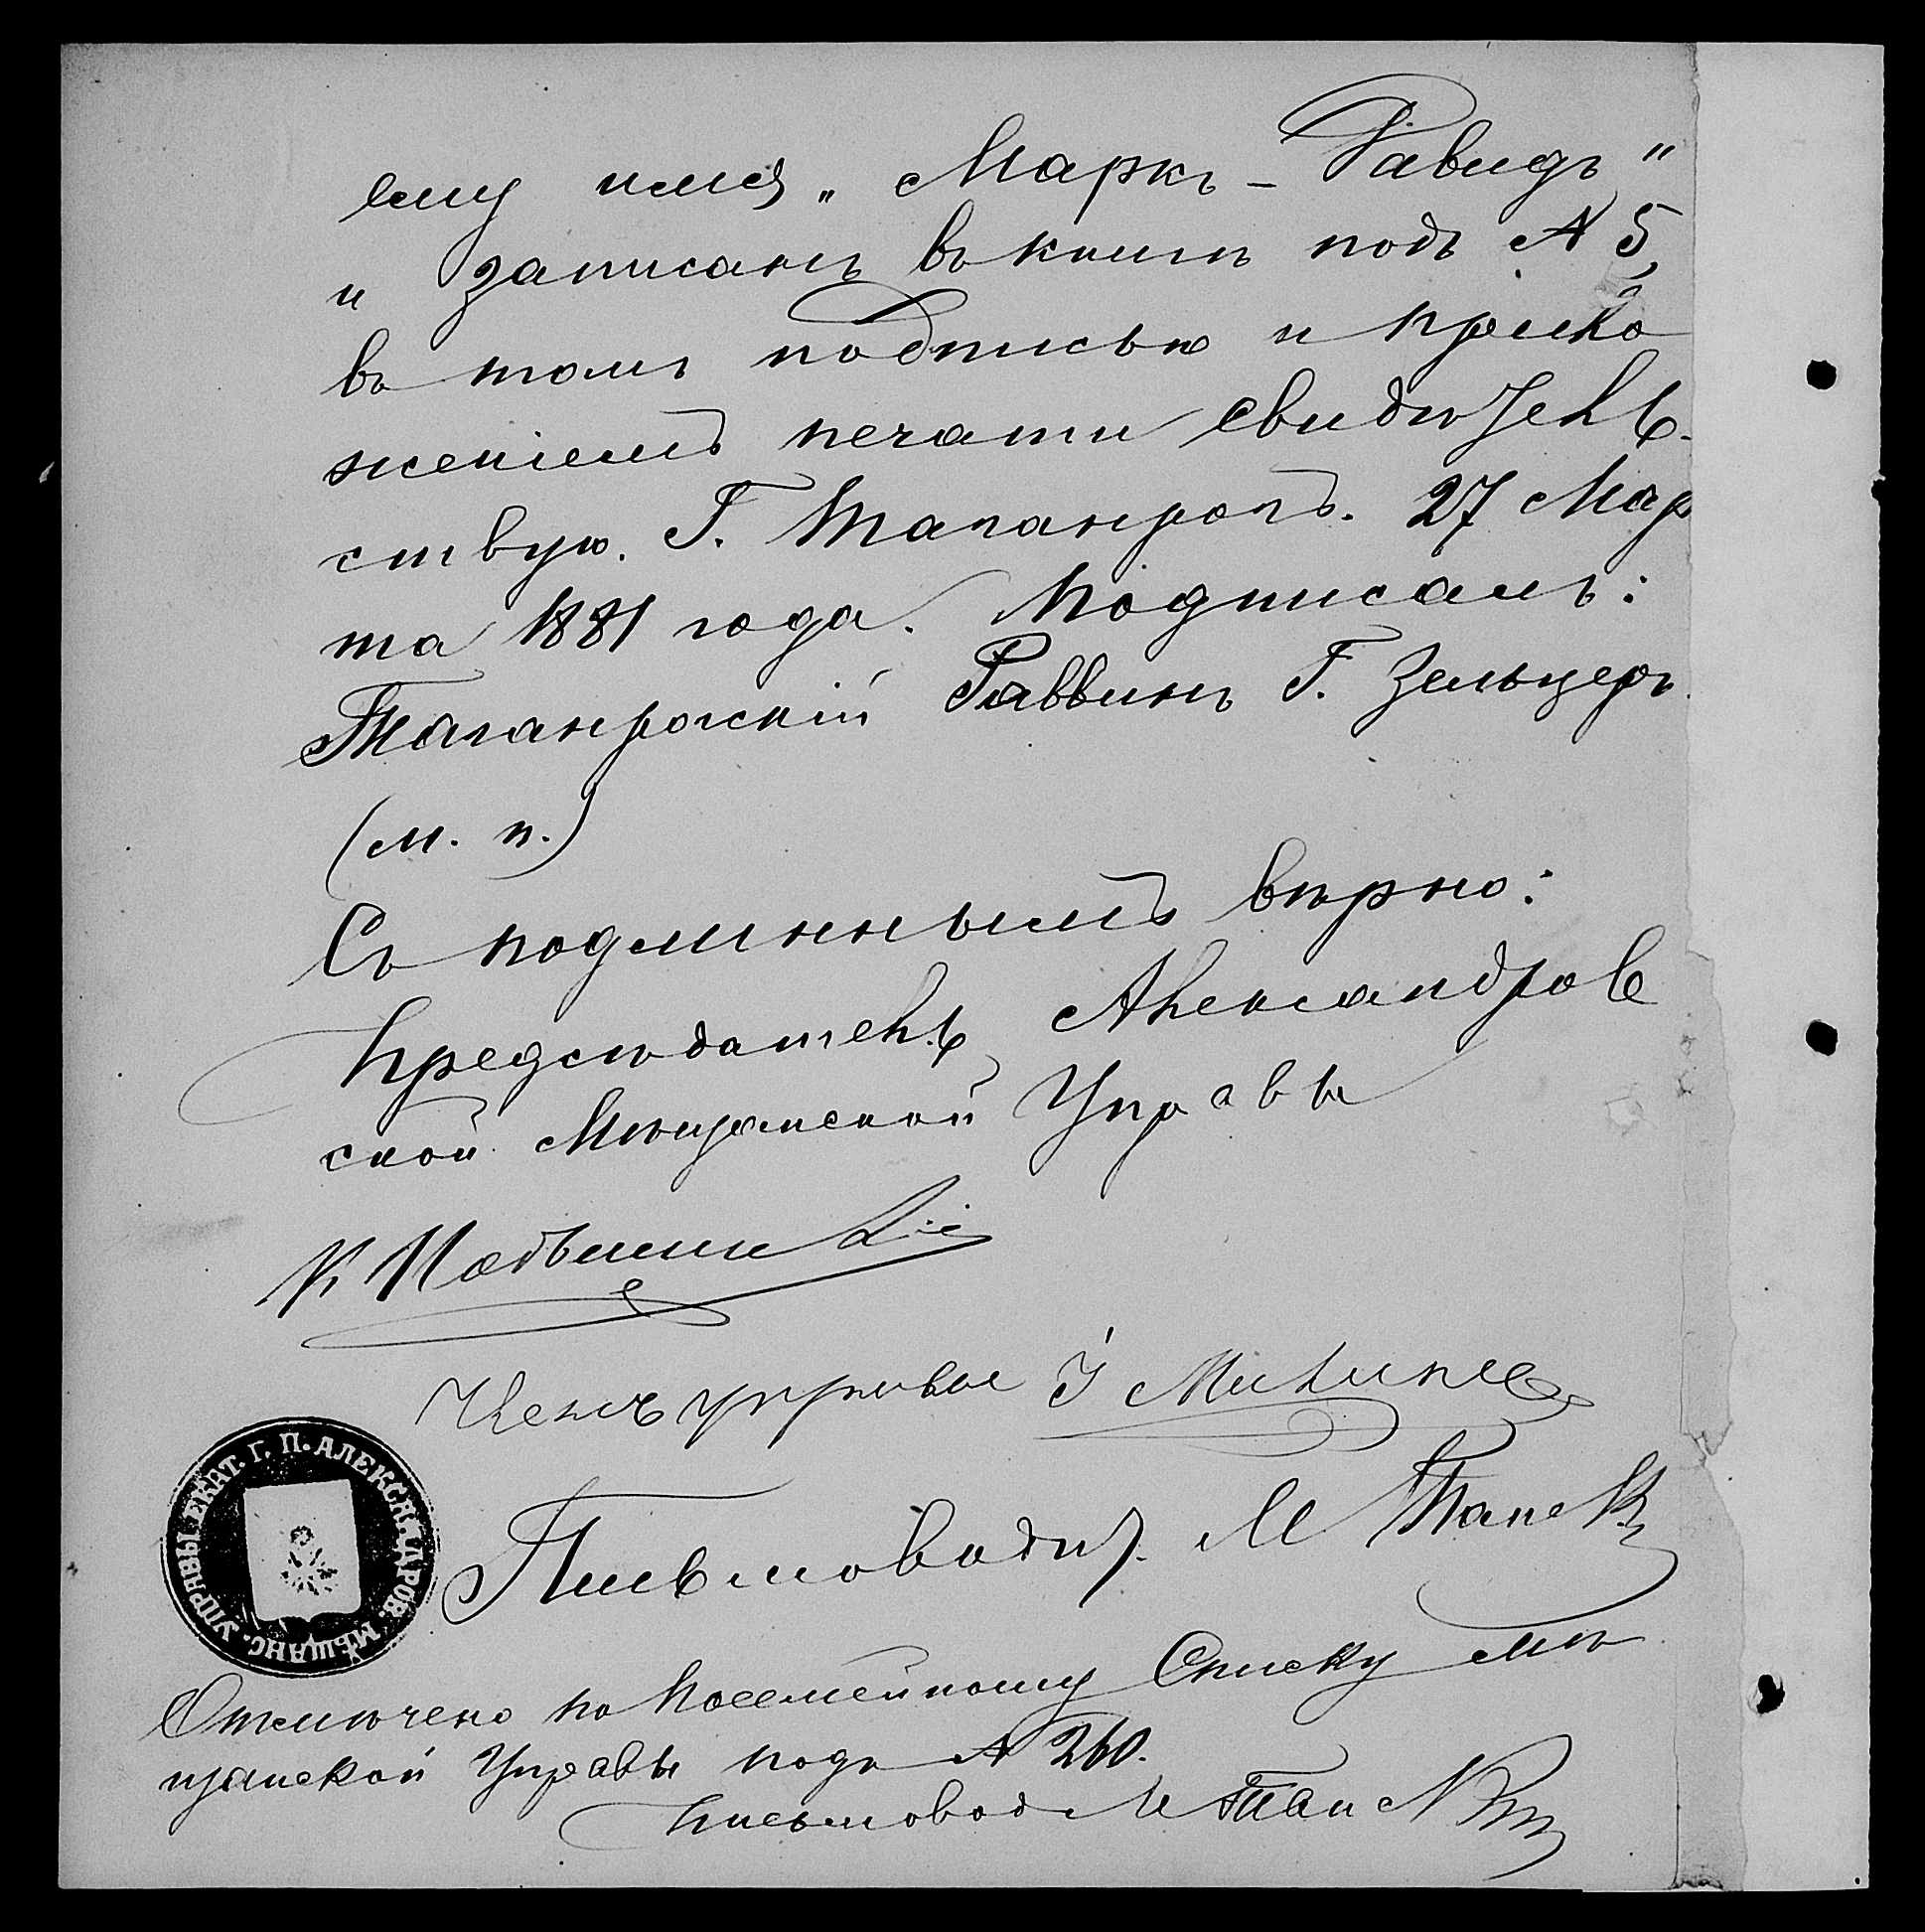 ему имя „Маркъ-Давидъ"
и записанъ въ книгѣ подъ № 5,
въ томъ подписью и прило
женіемъ печати свидѣтель-
ствую. Г. Таганрогъ. 27 Мар
та 1881 года. Подписалъ:
Таганрогскій Раввинъ Г. Зельцеръ.
(М. п.)
Съ подлиннымъ вѣрно:
Предсѣдатель Александров
ской Мѣщанской Управы
Членъ управы І
УПРАВЫ ЕКАТ. Г. П. АЛЕКСАНДРОВ. МѢЩАНС.
Письмовод. М
Отмѣчено по Посемейному Списку Мѣ
щанской Управы подъ № 260.
Письмовод М